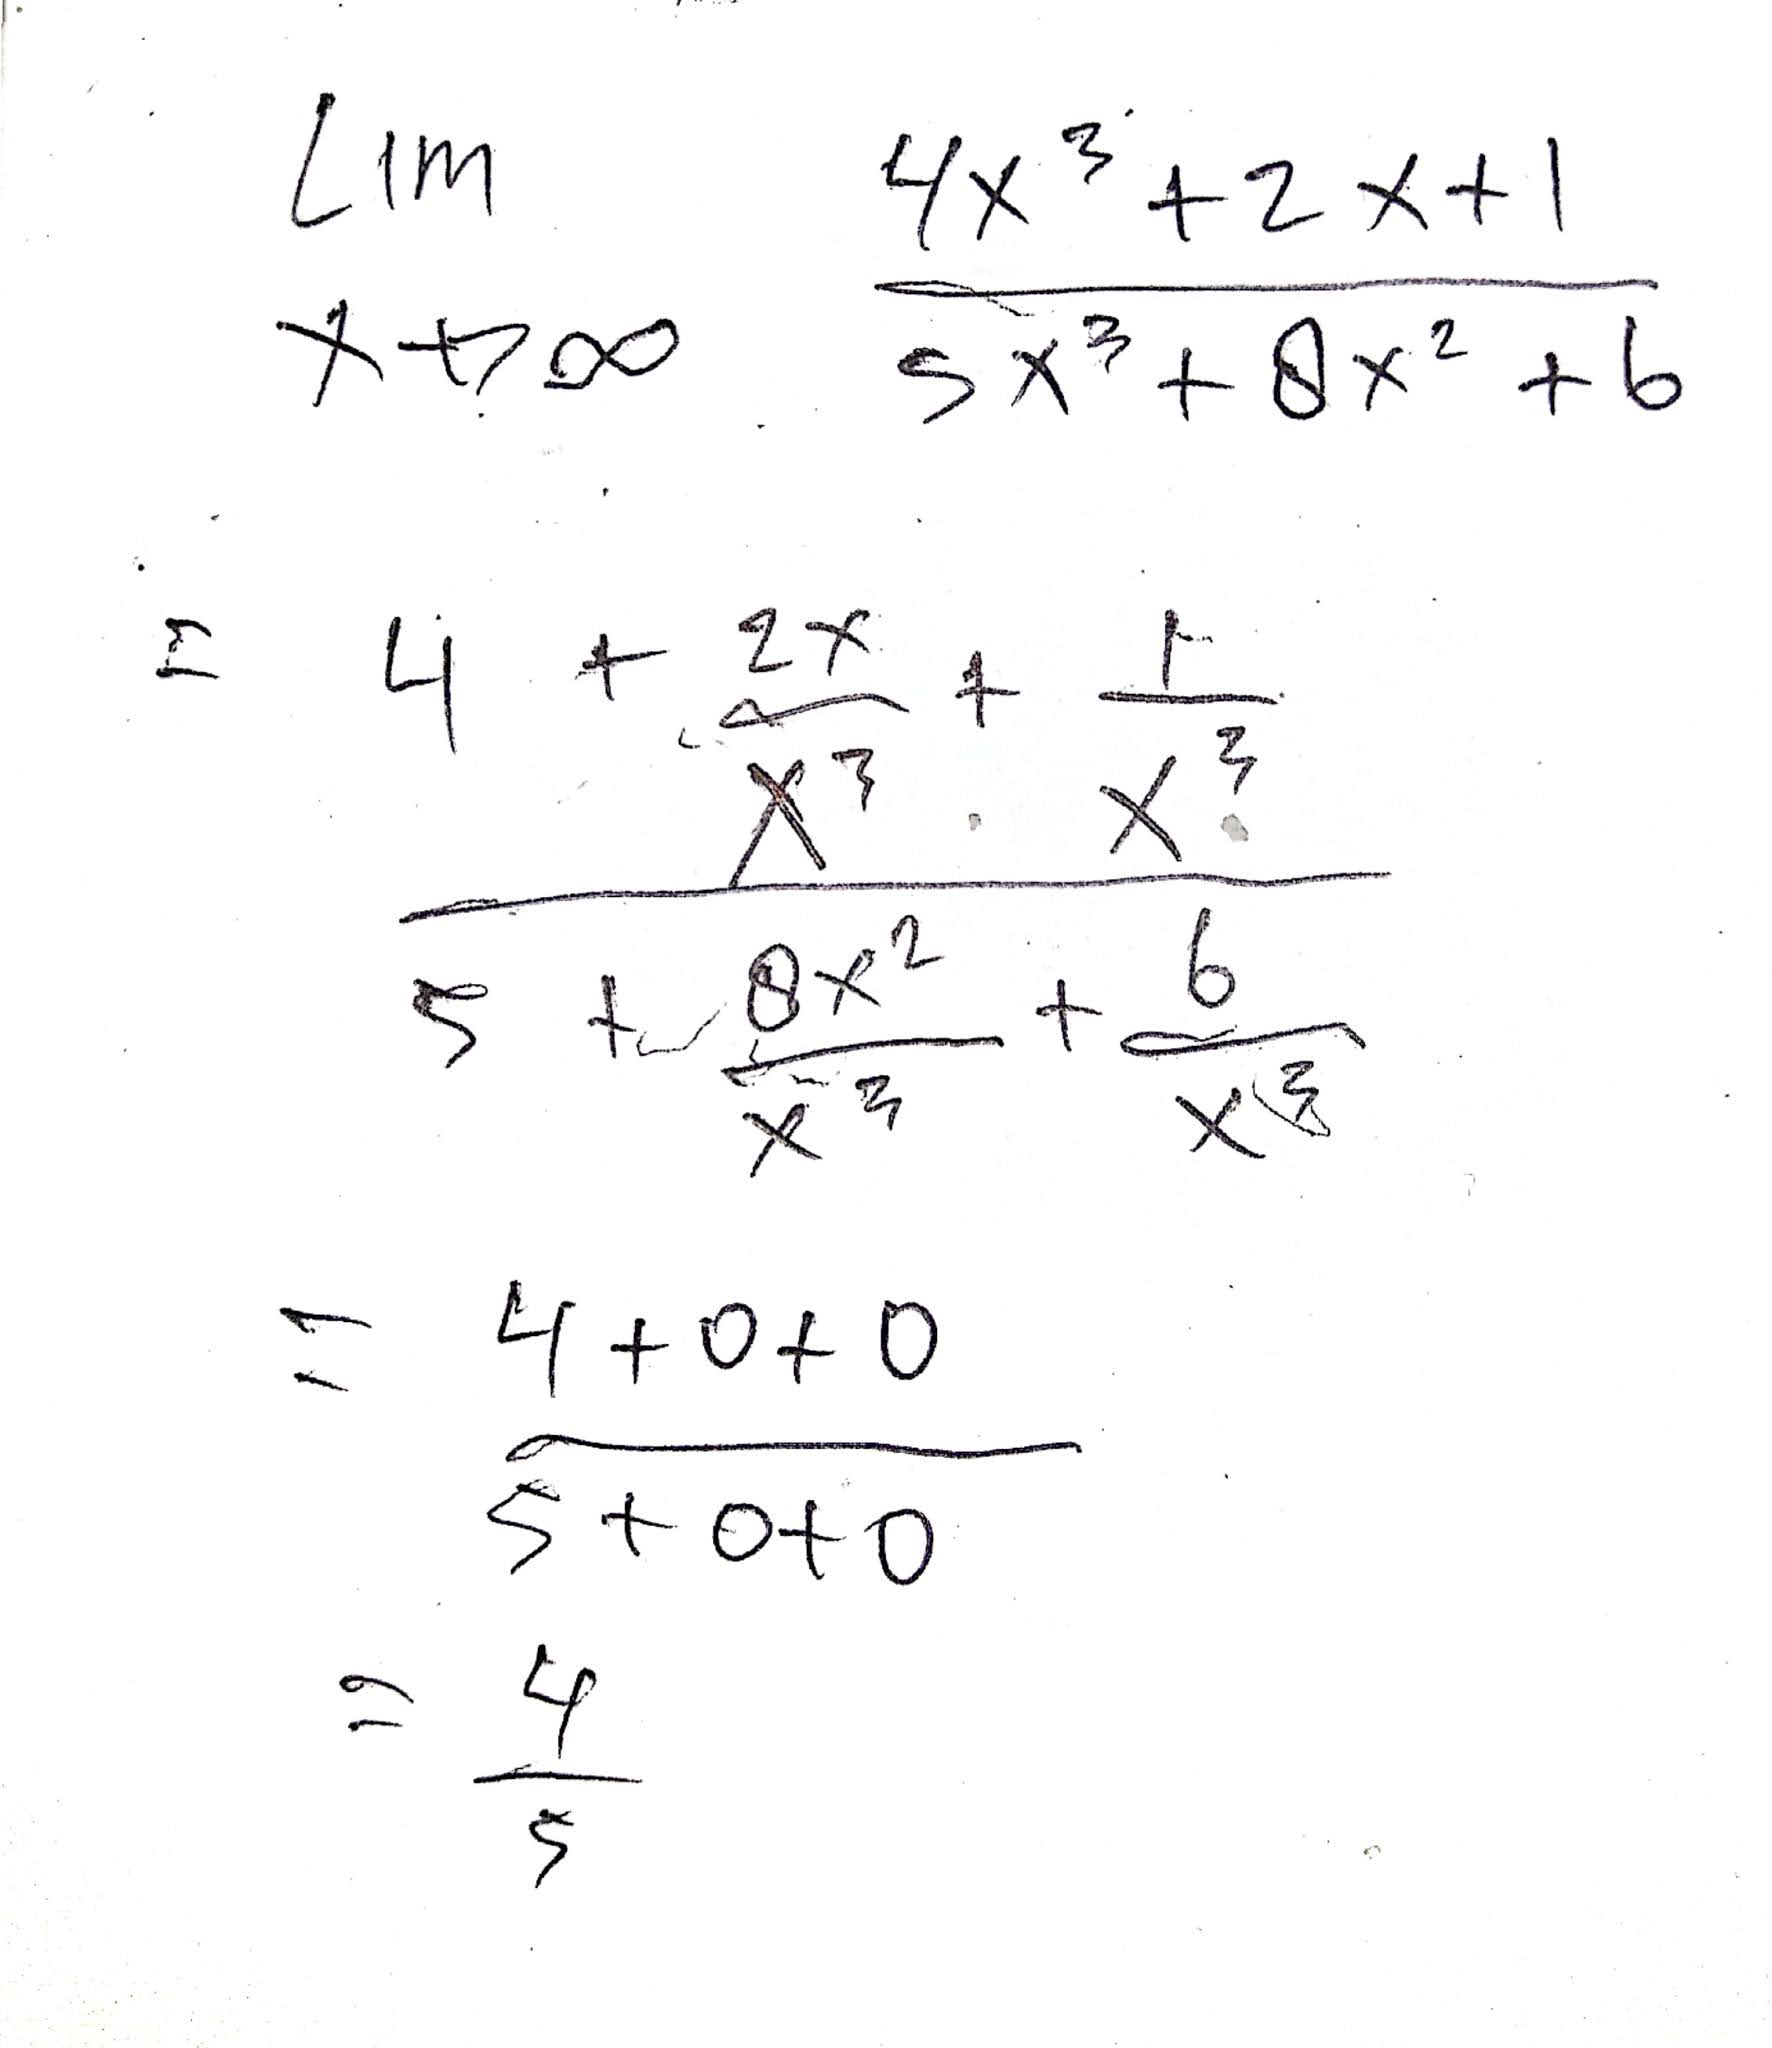 LIM 4x³ + 2x + 1
x → ∞ 5x³ + 8x² + 6
= 4 + 2x + 1
x³ x³
5 + 8x² + 6
x³ x³
= 4 + 0 + 0
5 + 0 + 0
= 4
5